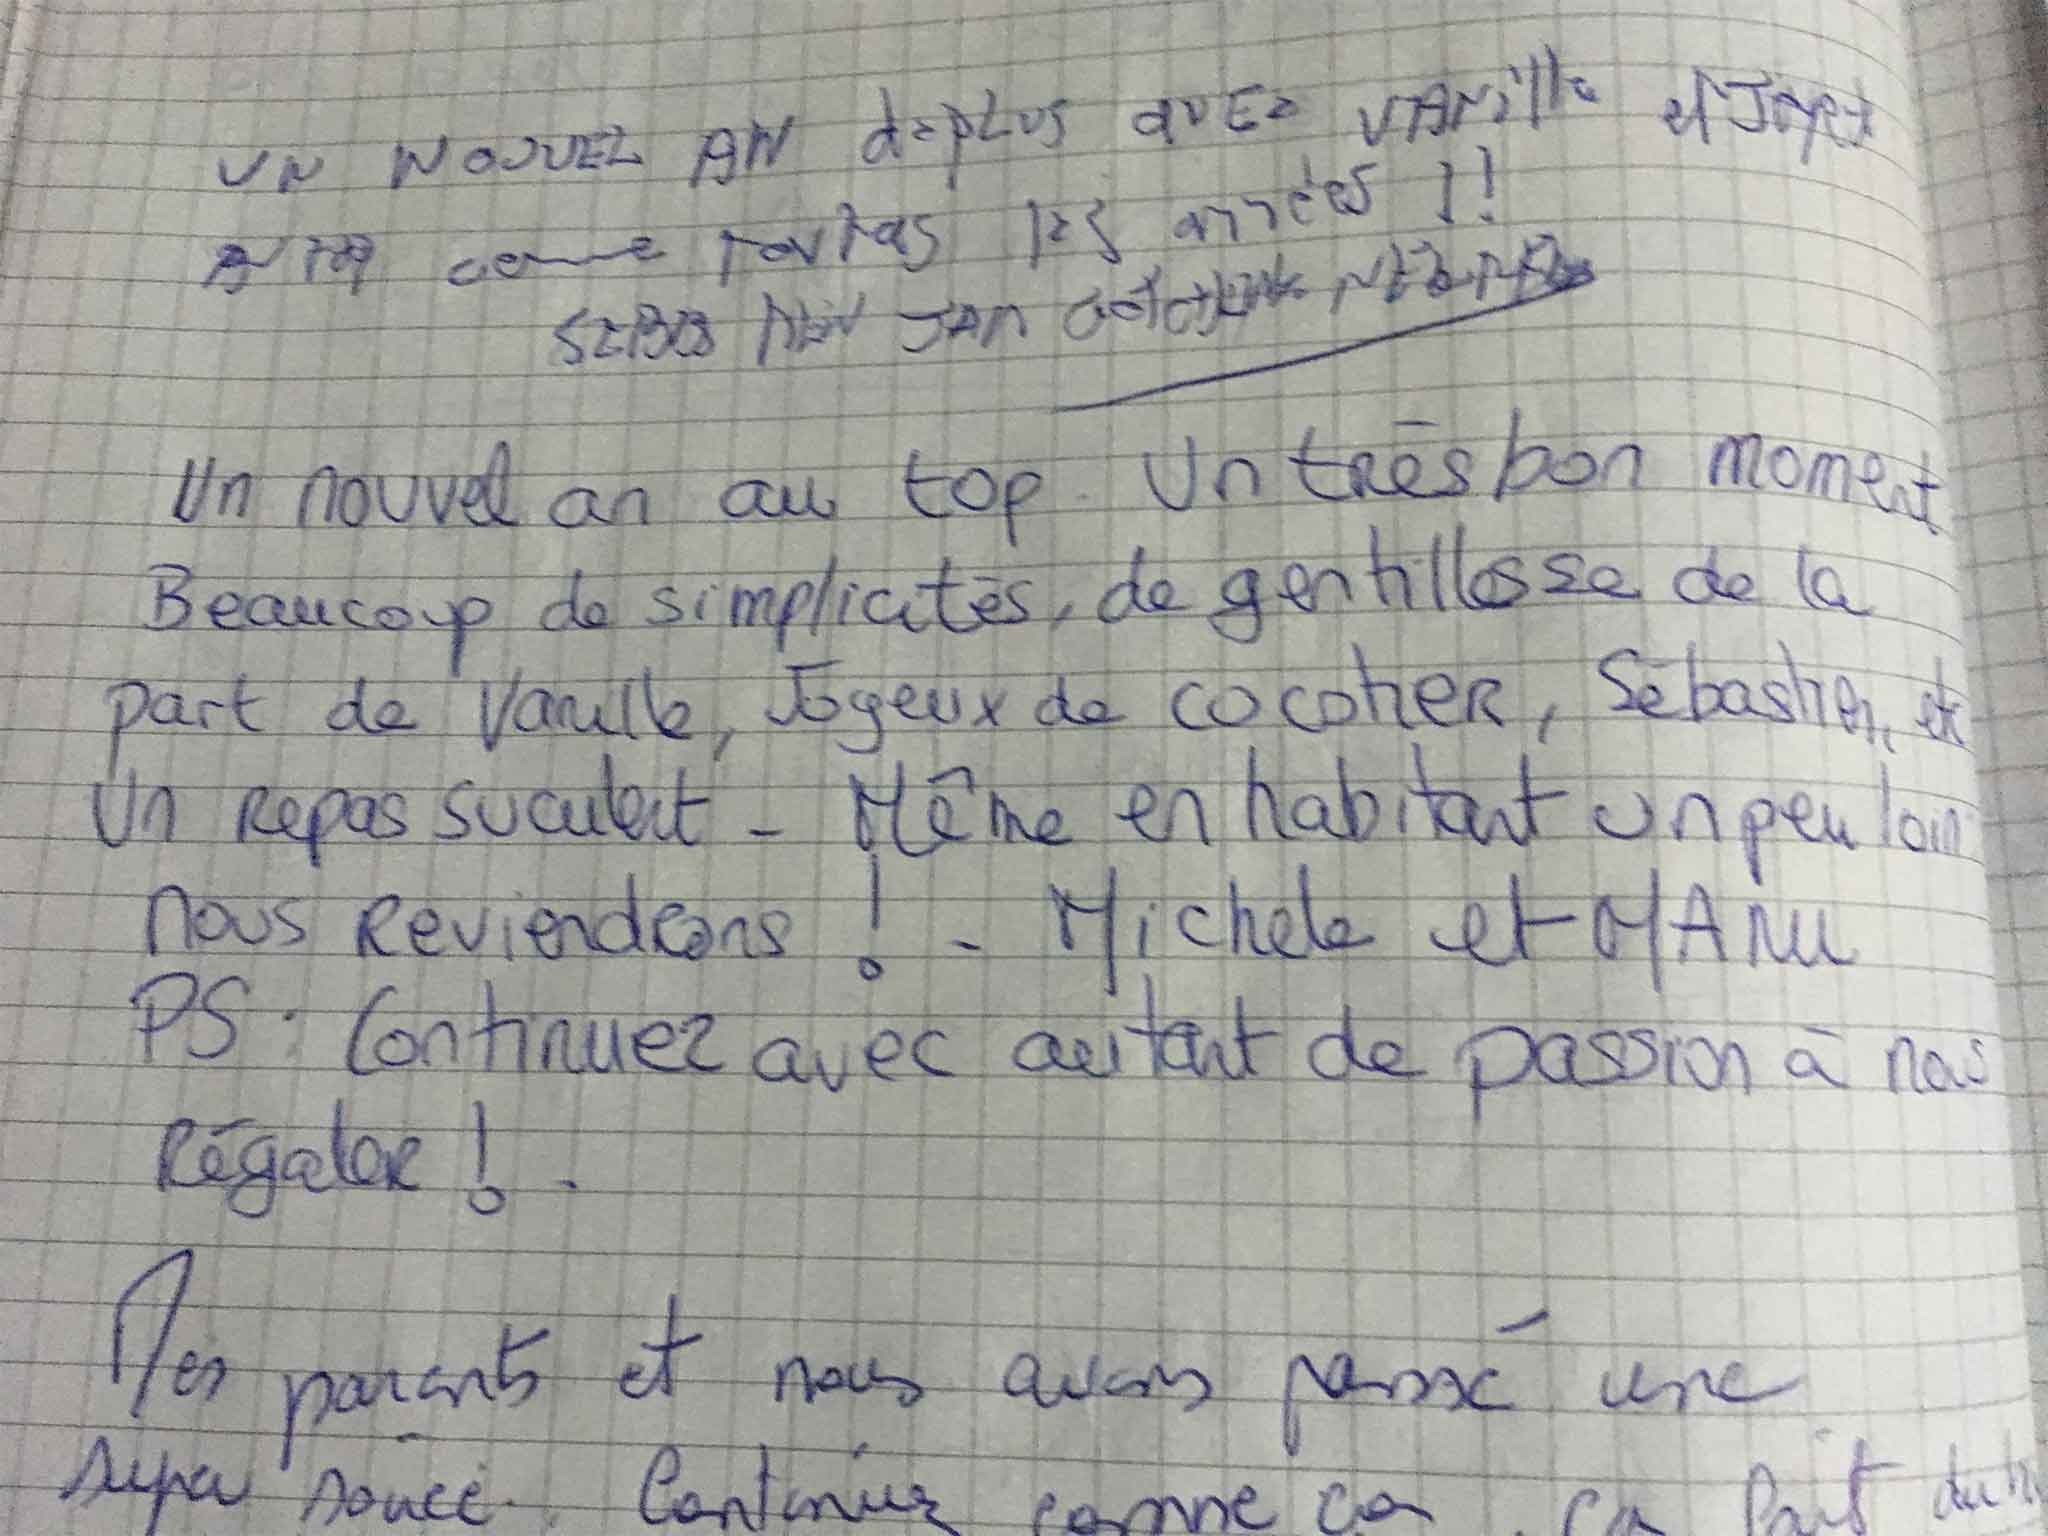 UN NOUVEL AN de plus avez VANille et
come toutes les années !!
Un nouvel an au top. Un très bon moment
Beaucoup de simplicités, de gentillesse de la
part de Vanille, Joyeux de cocotier, Sébastien, et
Un Repas suculent - Même en habitant un peu loin
nous Reviendrons ! - Michele et MANU
PS. Continuez avec autant de passion à nous
Régaler ! .
Mes parents et nous avons passé une
super soirée. Continuez comme ça. ça fait du